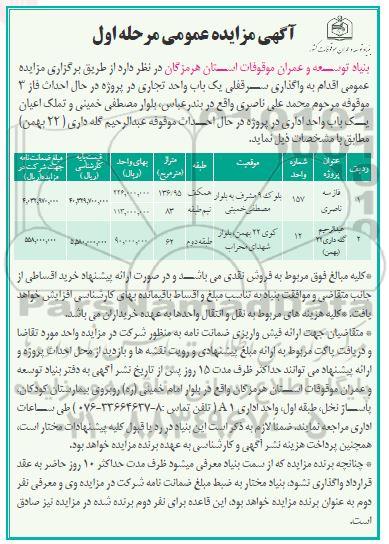 آگهی مزایده عمومی مرحله اول
بنیاد توسعه و عمران موقوفات کشور
بنیاد توسعه و عمران موقوفات استان هرمزگان در نظر دارد از طریق برگزاری مزایده
عمومی اقدام به واگذاری سرقفلی یک باب واحد تجاری در پروژه در حال احداث فاز ۳
موقوفه مرحوم محمد علی ناصری واقع در بندرعباس، بلوار مصطفی خمینی و تملک اعیان
یک باب واحد اداری در پروژه در حال احداث موقوفه عبدالرحیم گله داری (۲۲ بهمن)
مطابق با مشخصات ذیل نماید.
ردیف عنوان پروژه شماره واحد موقعیت طبقه متراژ (مترمربع) بهای واحد (ریال) قیمت پایه کارشناسی (ریال) مبلغ ضمانت نامه جهت شرکت در مزایده (ریال)
۱ فاز سه ناصری ۱۵۷ بلوک ۹ مشرف به بلوار مصطفی خمینی همکف ۱۳۶/۹۵ ۲۲۶,۰۰۰,۰۰۰ ۴۰,۳۲۹,۷۰۰,۰۰۰ ۴,۰۳۲,۹۷۰,۰۰۰
نیم طبقه ۸۳ ۱۱۳,۰۰۰,۰۰۰
۲ عبدالرحیم گله داری (۲۲ بهمن) ۱۲ کوی ۲۲ بهمن، بلوار شهدای محراب طبقه دوم ۶۲ ۹۰,۰۰۰,۰۰۰ ۵,۵۸۰,۰۰۰,۰۰۰ ۵۵۸,۰۰۰,۰۰۰
*کلیه مبالغ فوق مربوط به فروش نقدی می باشد و در صورت ارائه پیشنهاد خرید اقساطی از
جانب متقاضی و موافقت بنیاد به تناسب مبلغ و اقساط باقیمانده بهای کارشناسی افزایش خواهد
یافت. *کلیه هزینه های مربوط به نقل و انتقال واحدها به عهده خریداران می باشد.
*متقاضیان جهت ارائه فیش واریزی ضمانت نامه به منظور شرکت در مزایده واحد مورد تقاضا
و دریافت پاکت مربوط به ارائه مبلغ پیشنهادی و رویت نقشه ها و بازدید از محل احداث پروژه و
ارائه پیشنهاد می توانند حداکثر ظرف مدت ۱۵ روز پس از تاریخ نشر آگهی به دفتر بنیاد توسعه
و عمران موقوفات استان هرمزگان واقع در بلوار امام خمینی (ره) روبروی بیمارستان کودکان،
پاساژ نخل، طبقه اول، واحد اداری A1 (تلفن تماس: ۸-۳۳۶۶۴۶۳۷-۰۷۶) طی ساعات
اداری مراجعه نمایند. ضمنا لازم به ذکر است این بنیاد در رد یا قبول کلیه پیشنهادات مختار است،
همچنین پرداخت هزینه نشر آگهی و کارشناسی به عهده برنده مزایده خواهد بود.
*چنانچه برنده مزایده که از سمت بنیاد معرفی میشود ظرف مدت حداکثر ۱۰ روز حاضر به عقد
قرارداد واگذاری نشود، بنیاد مختار به ضبط مبلغ ضمانت نامه شرکت در مزایده وی و معرفی نفر
دوم به عنوان برنده مزایده خواهد بود، این قاعده برای نفر دوم برنده شده در مزایده نیز صادق
است.